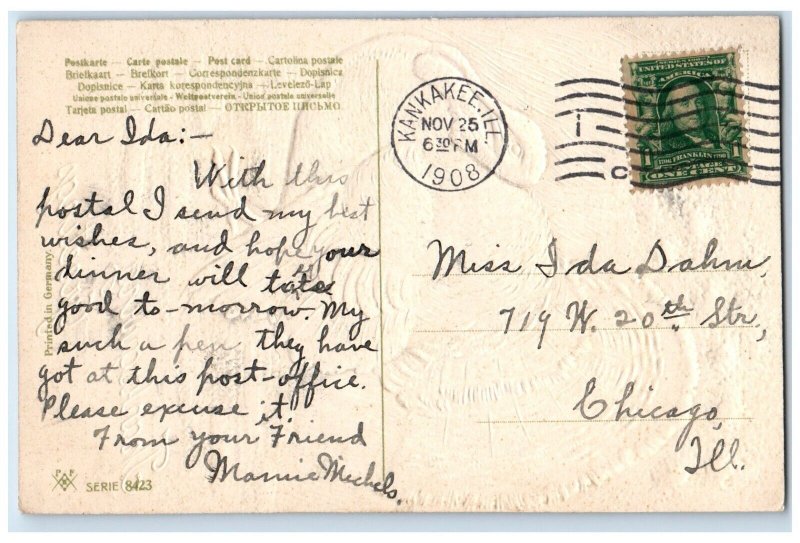 Postkarte — Carte postale — Post card — Cartolina postale
Briefkaart — Brefkort — Correspondenzkarte — Dopisnica
Dopisnice — Karta korespondencyjna — Levelező-Lap
Union postale universelle — Weltpostverein — Union postale universelle
Tarjeta postal — Cartão postal — ОТКРЫТОЕ ПИСЬМО
Dear Ida:—
With this
postal I send my best
wishes, and hope your
dinner will taste
good to-morrow. My
such a pen they have
got at this post-office.
Please excuse it.
From your Friend
Mamie Michels.
Printed in Germany
PF
SERIE 8423
KANKAKEE, ILL.
NOV 25
6 30 PM
1908
1
C
SERIES 1902
UNITED STATES OF
AMERICA
1706 FRANKLIN 1790
POSTAGE
1 ONE CENT 1
Miss Ida Dahm,
719 W. 20th Str,
Chicago,
Ill.